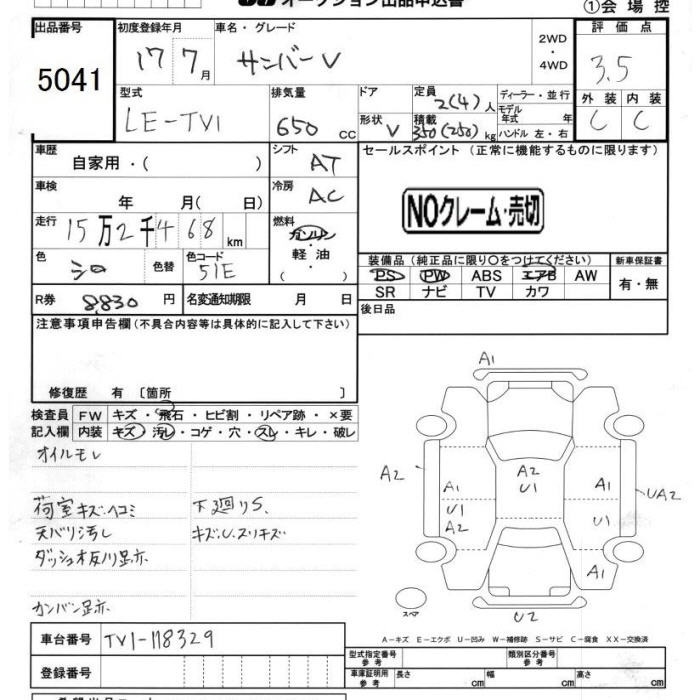 オークション出品申込書
①会場控
出品番号
5041
初度登録年月
17 7月
車名・グレード
サンバーV
2WD
・
4WD
評価点
3.5
型式
LE-TV1
排気量
650 cc
ドア
定員
2(4)人
ディーラー・並行
モデル
年式 年
形状
V
積載
350(250)kg
ハンドル 左・右
外装
C
内装
C
車歴
自家用・( )
シフト
AT
セールスポイント(正常に機能するものに限ります)
車検
年 月( 日)
冷房
AC
NOクレーム・売切
走行
15万2千468km
燃料
ガソリン
・
軽油
( )
色
シロ
色替
色コード
51E
装備品(純正品に限り○をつけてください)
PS PW ABS エアB AW
SR ナビ TV カワ
新車保証書
有・無
R券
8,830円
名変通知期限 月 日
後日品
注意事項申告欄(不具合内容等は具体的に記入して下さい)
修復歴 有 〔箇所 〕
検査員
記入欄
FW キズ・飛石・ヒビ割・リペア跡・×要
内装 キズ・汚レ・コゲ・穴・スレ・キレ・破レ
オイルモレ
荷室キズ、ヘコミ
下廻りS、
天バリ汚し
キズ、U、スリキズ
ダッシュ
カンバン跡
A1
A2
A2
U1
A1
U1
A2
A1
U1
A1
UA2
U2
スペア
A-キズ E-エクボ U-凹み W-補修跡 S-サビ C-腐食 XX-交換済
車台番号
TV1-118329
登録番号
型式指定番号
参考
類別区分番号
参考
車庫証明用
参考
長さ cm
幅 cm
高さ cm